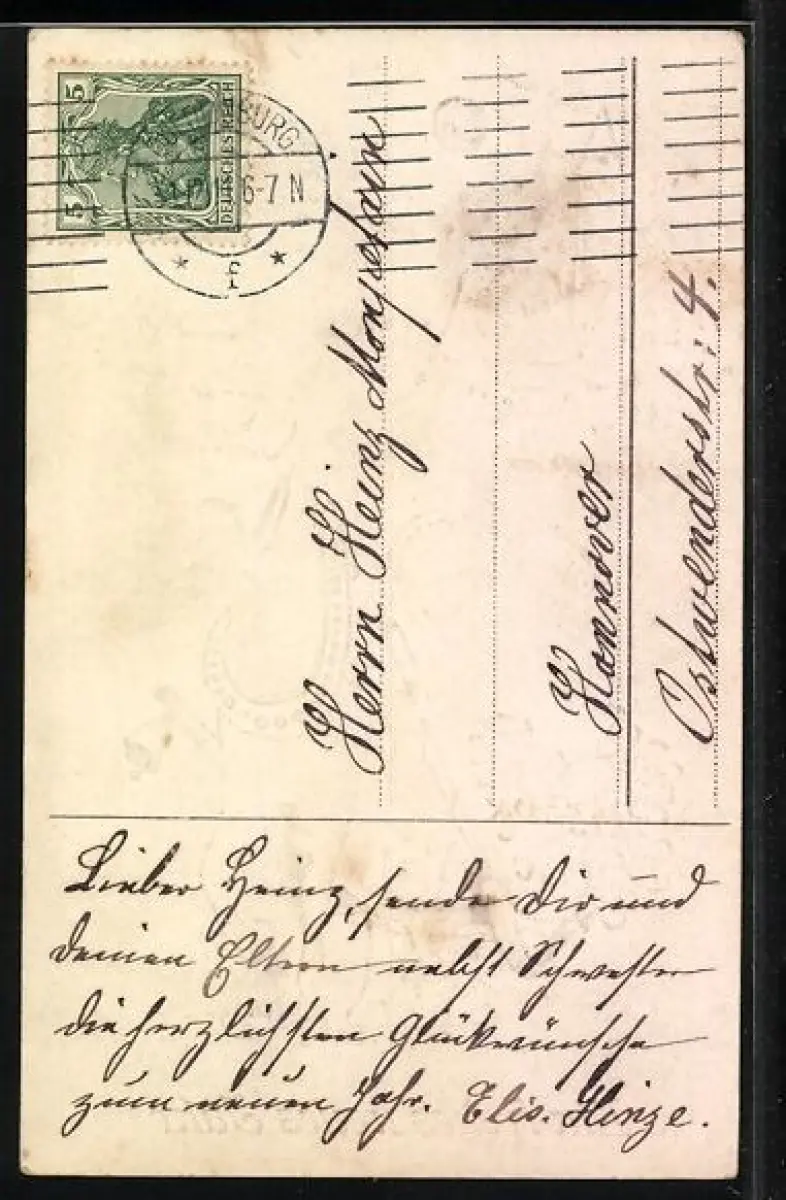 5 5
DEUTSCHES REICH
BURG
6-7 N
* f *
Herrn Heinz
Hannover
Ostwenderstr: 4.
Lieber Heinz, sende Dir und
deinen Eltern nebst Schwester
die herzlichsten Glückwünsche
zum neuen Jahr. Elis. Hinze.